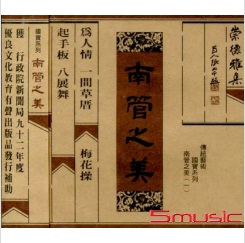 崇德雅集
南管之美
傳統藝術
國寶系列
南管之美(一)
為人情 一間草厝
起手板 八展舞 梅花操
國寶系列 南管之美
獲 行政院新聞局九十二年度
優良文化教育有聲出版品發行補助
5music